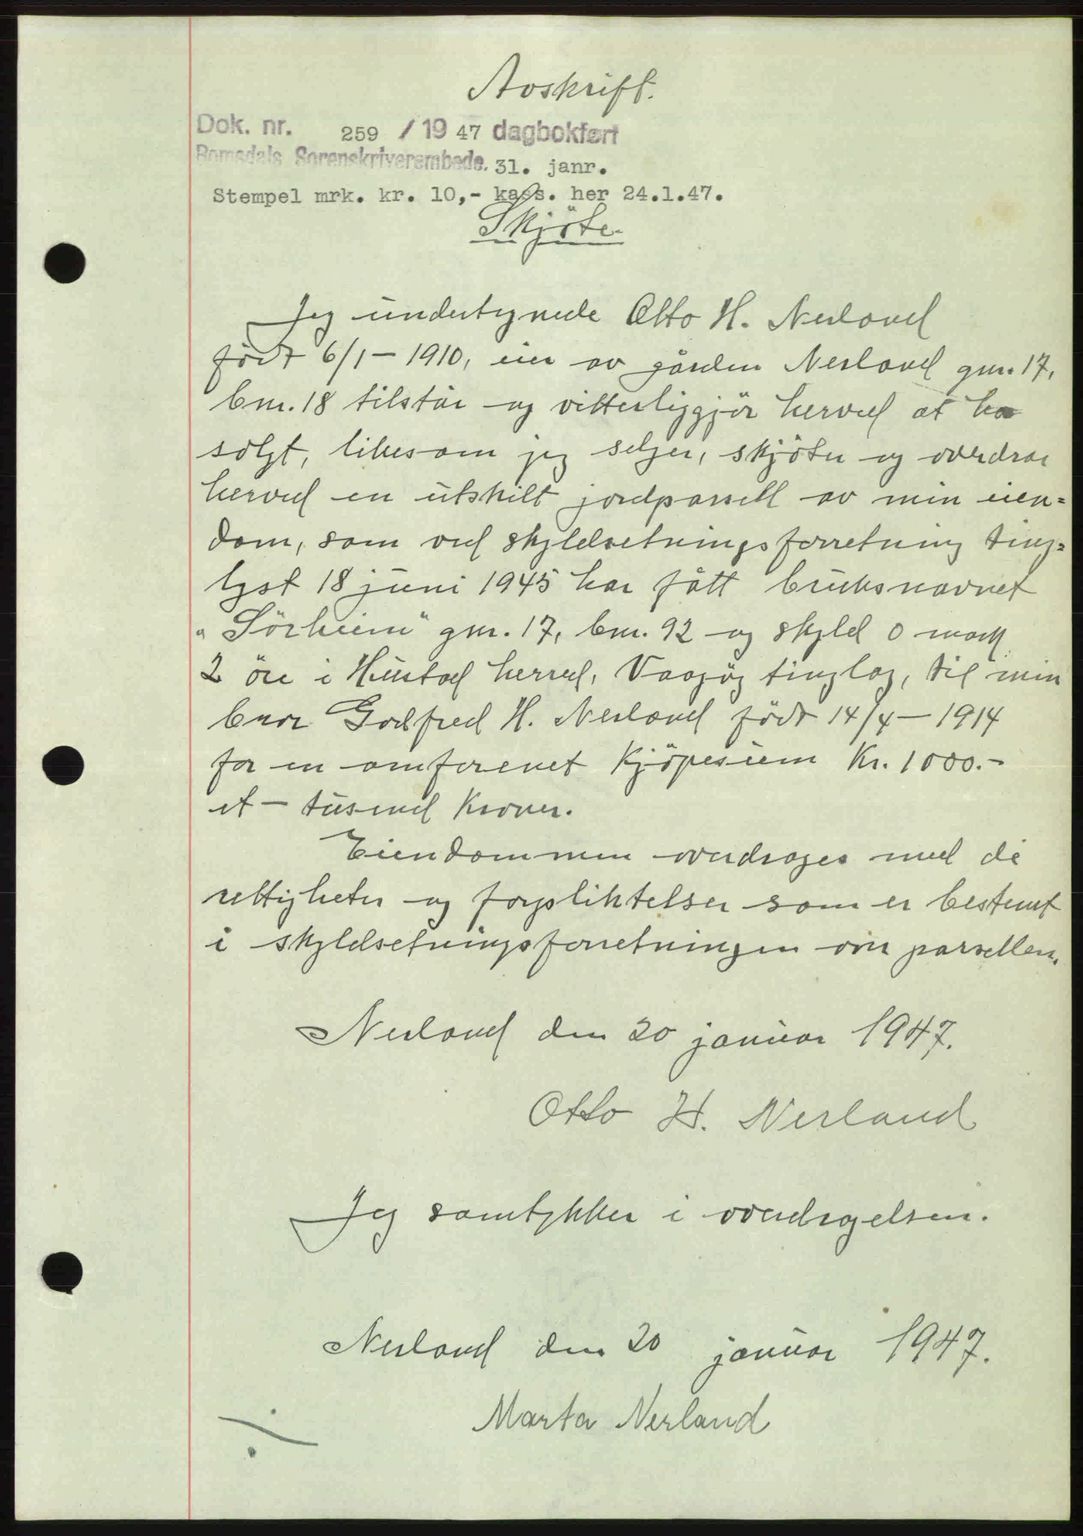 Avskrift.
Dok. nr. 259 / 19 47 dagbokført
Romsdals Sorenskriverembede. 31. janr.
Stempel mrk. kr. 10,- kass. her 24.1.47.
Skjöte.
Jeg undertegnede Otto H. Nerland
født 6/1 - 1910, eier av gården Nerland gnr. 17,
bnr. 18 tilstår og vitterliggjör herved at ha
solgt, likesom jeg selger, skjöter og overdrar
herved en utskilt jordparsell av min eien=
dom, som ved skyldsetningsforretning ting=
lyst 18 juni 1945 har fått bruksnavnet
"Sörheim" gnr. 17, bnr. 92 og skyld 0 mark
2 öre i Hustad herred, Vaagöy tinglag, til min
bror Godfred H. Nerland födt 14/4 - 1914
for en omforenet kjöpesum Kr. 1000.-
et - tusend kroner.
Eiendommen overdrages med de
rettigheter og forpliktelser som er bestemt
i skyldsetningsforretningen over parsellen.
Nerland den 20 januar 1947.
Otto H. Nerland
Jeg samtykker i overdragelsen.
Nerland den 20 januar 1947.
Marta Nerland